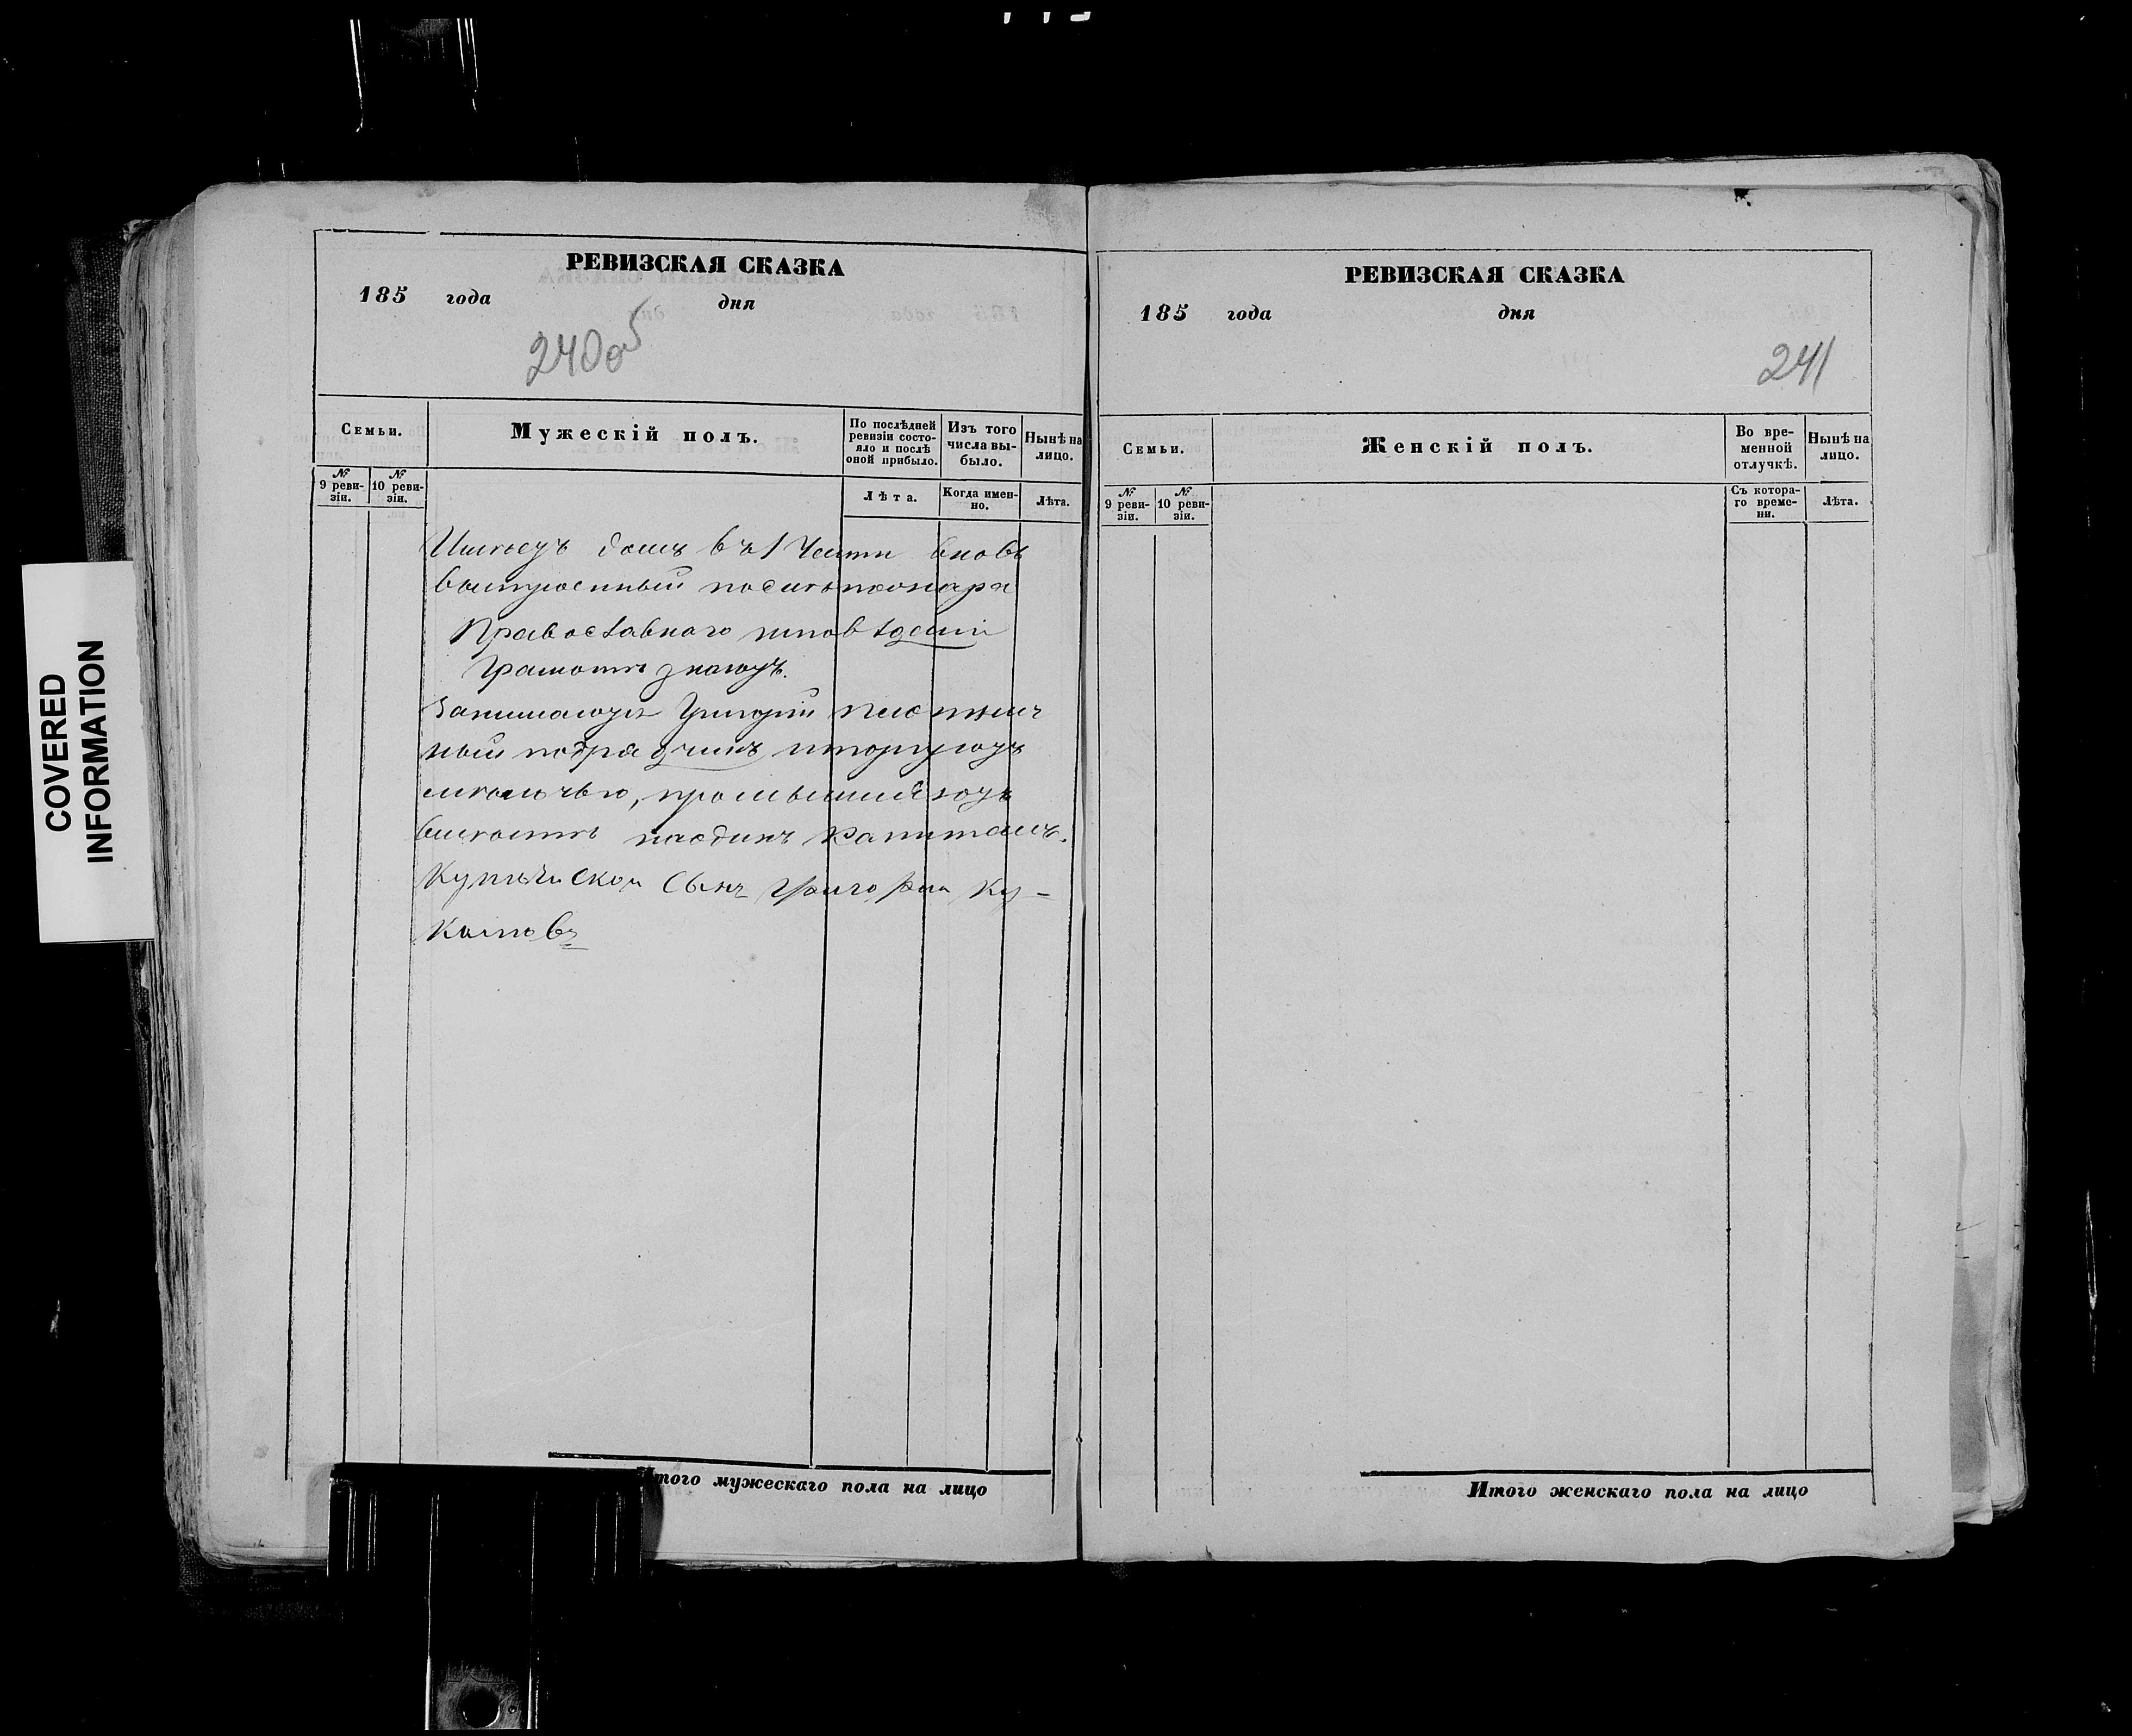 COVERED
INFORMATION
РЕВИЗСКАЯ СКАЗКА
185 года дня
240об
Семьи.
Мужескій полъ.
По послѣдней ревизіи состояло и послѣ оной прибыло.
Изъ того числа выбыло.
Нынѣ на лицо.
№ 9 ревизіи.
№ 10 ревизіи.
Лѣта.
Когда именно.
Лѣта.
Имѣетъ домъ въ 1 Части вновь
выстроенный послѣ пожара
Православнаго исповѣданiя
Грамотѣ знаютъ.
Занимаются Григорий
ный подрядчикъ и торгуютъ
мелочью,
вмѣстѣ на одинъ капиталъ.
Купеческой Сынъ Григорий Ку-
РЕВИЗСКАЯ СКАЗКА
185 года дня
241
Семьи.
Женскій полъ.
Во временной отлучкѣ.
Нынѣ на лицо.
№ 9 ревизіи.
№ 10 ревизіи.
Съ котораго времени.
Лѣта.
Итого мужескаго пола на лицо
Итого женскаго пола на лицо